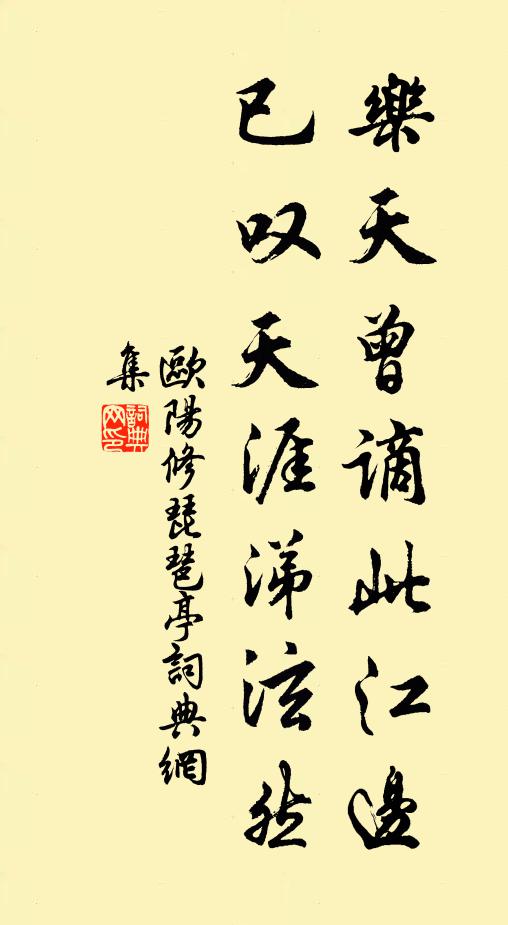 樂天曾謫此江邊
已叹天涯涕泫然
歐陽修琵琶亭詞典網
集
詞典
网印